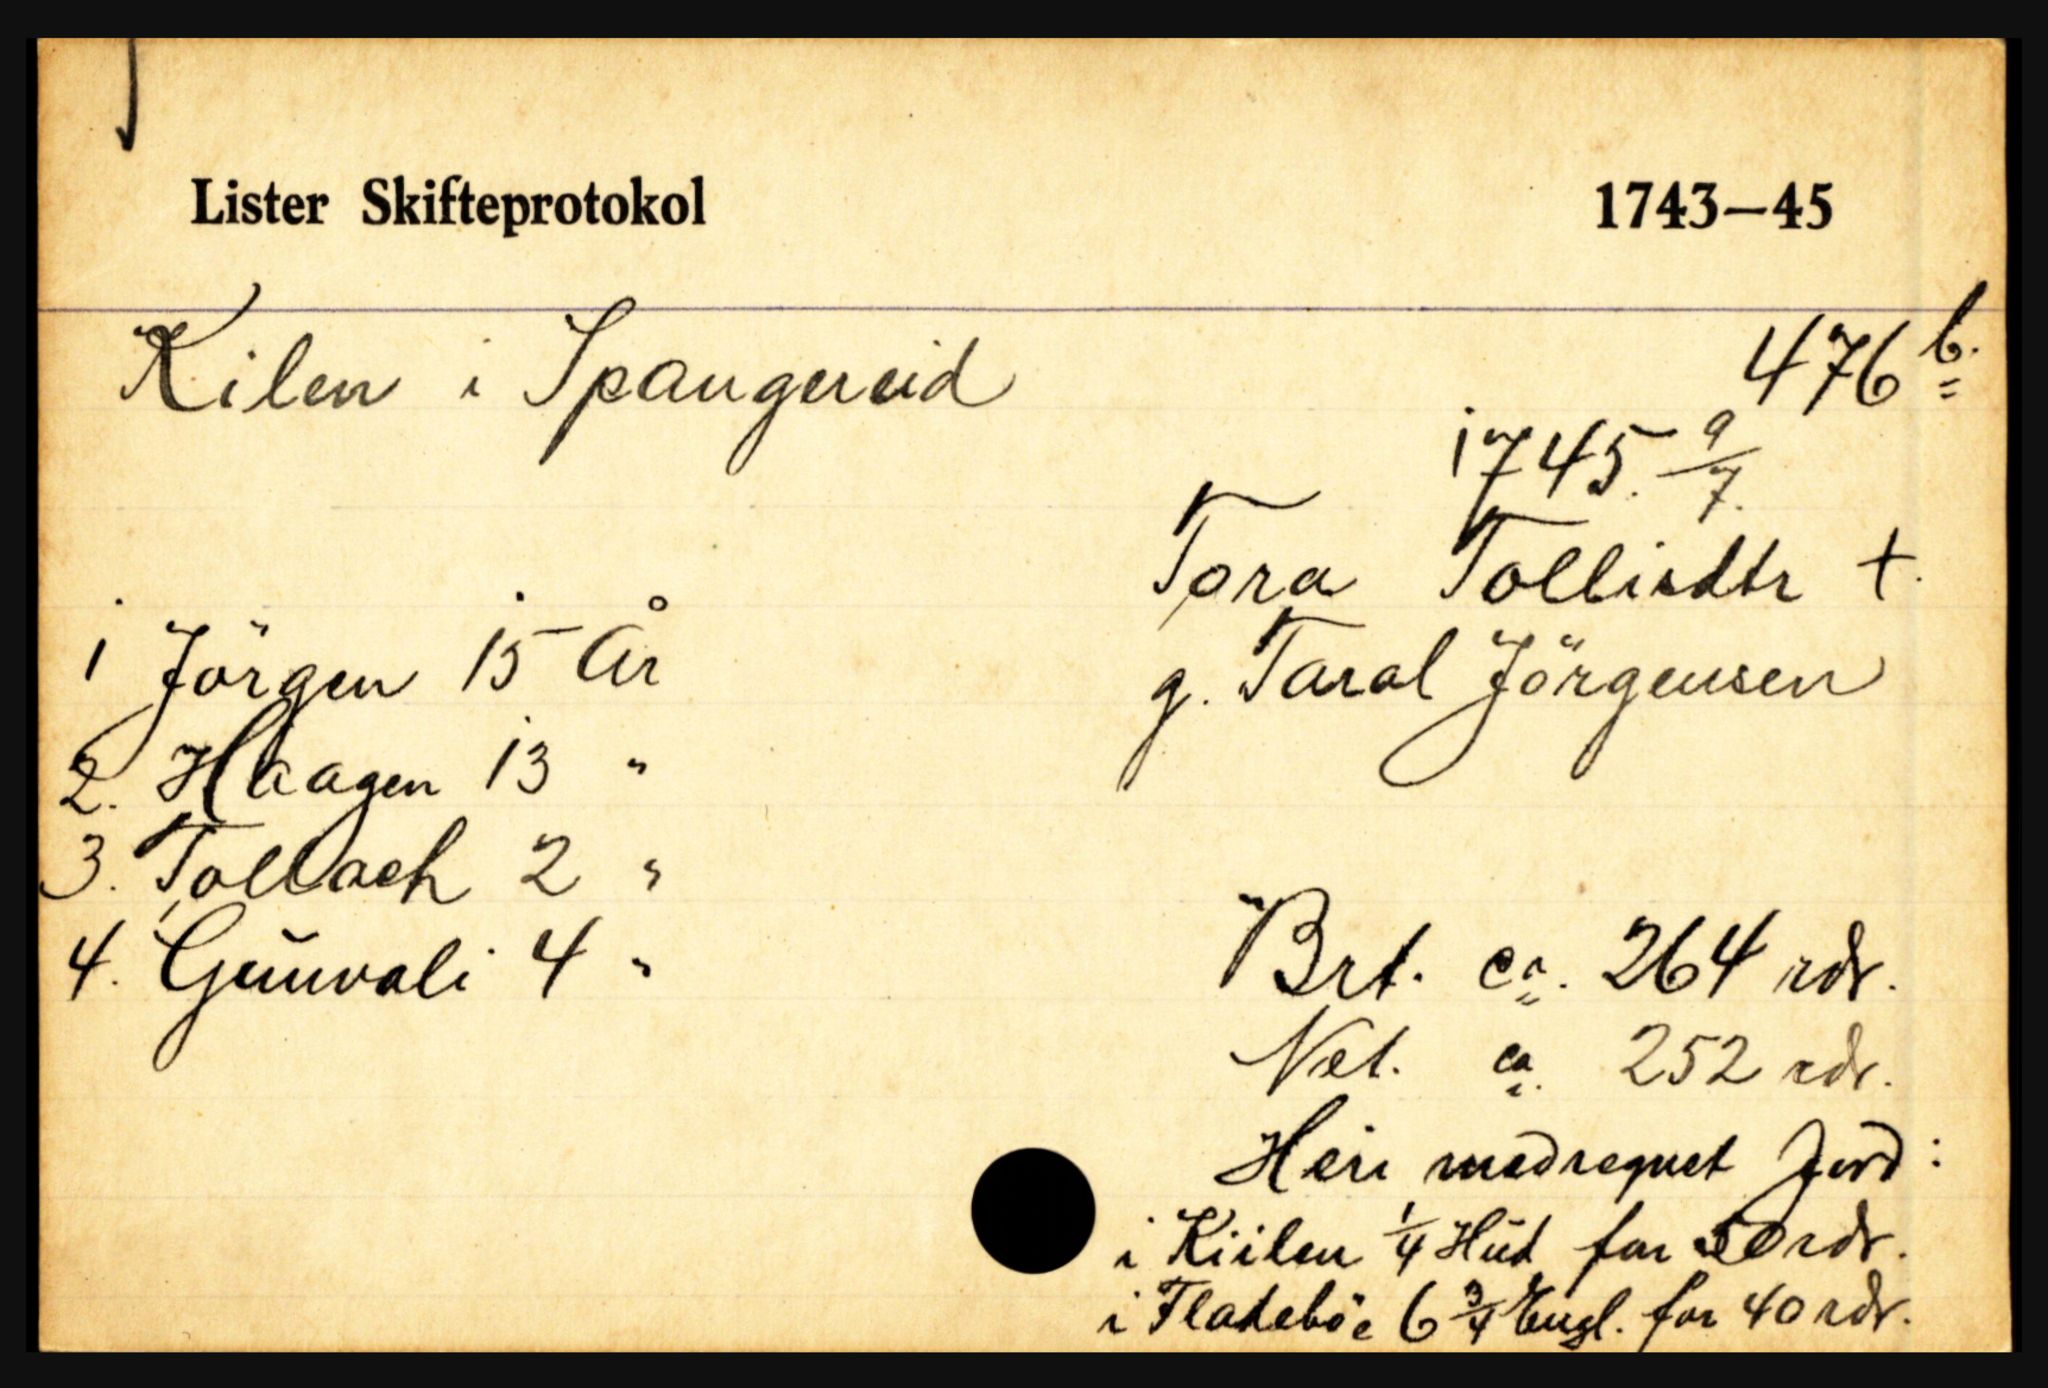 Lister Skifteprotokol 1743—45
Kilen i Spangereid 476 b.
1745. 9/7.
Tora Tollisdtr +.
1 Jörgen 15 År g. Taral Jörgensen
2. Haagen 13 "
3. Tollach 2 "
4. Gunvali 4 " Brt. ca. 264 rdr.
Net. ca. 252 rdr.
Heri medregnet Jord:
i Kiilen 1/4 Hud for 50 rdr.
i Fladeböe 6 3/4 Engl. for 40 rdr.